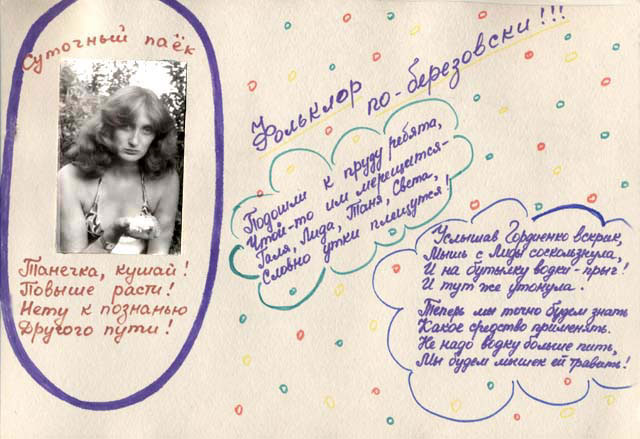 Суточный паёк
Танечка, кушай!
Повыше расти!
Нету к познанью
Другого пути!
Фольклор по-березовски!!!
Подошли к пруду ребята,
Чтой-то им мерещится-
Галя, Лида, Таня, Света,
Словно утки плещутся!
Услышав Гордиенко вскрик,
Мышь с Лиды соскользнула,
И на бутылку водки - прыг!
И тут же утонула.
Теперь мы точно будем знать
Какое средство применять.
Не надо водку больше пить,
Мы будем мышек ей травить!